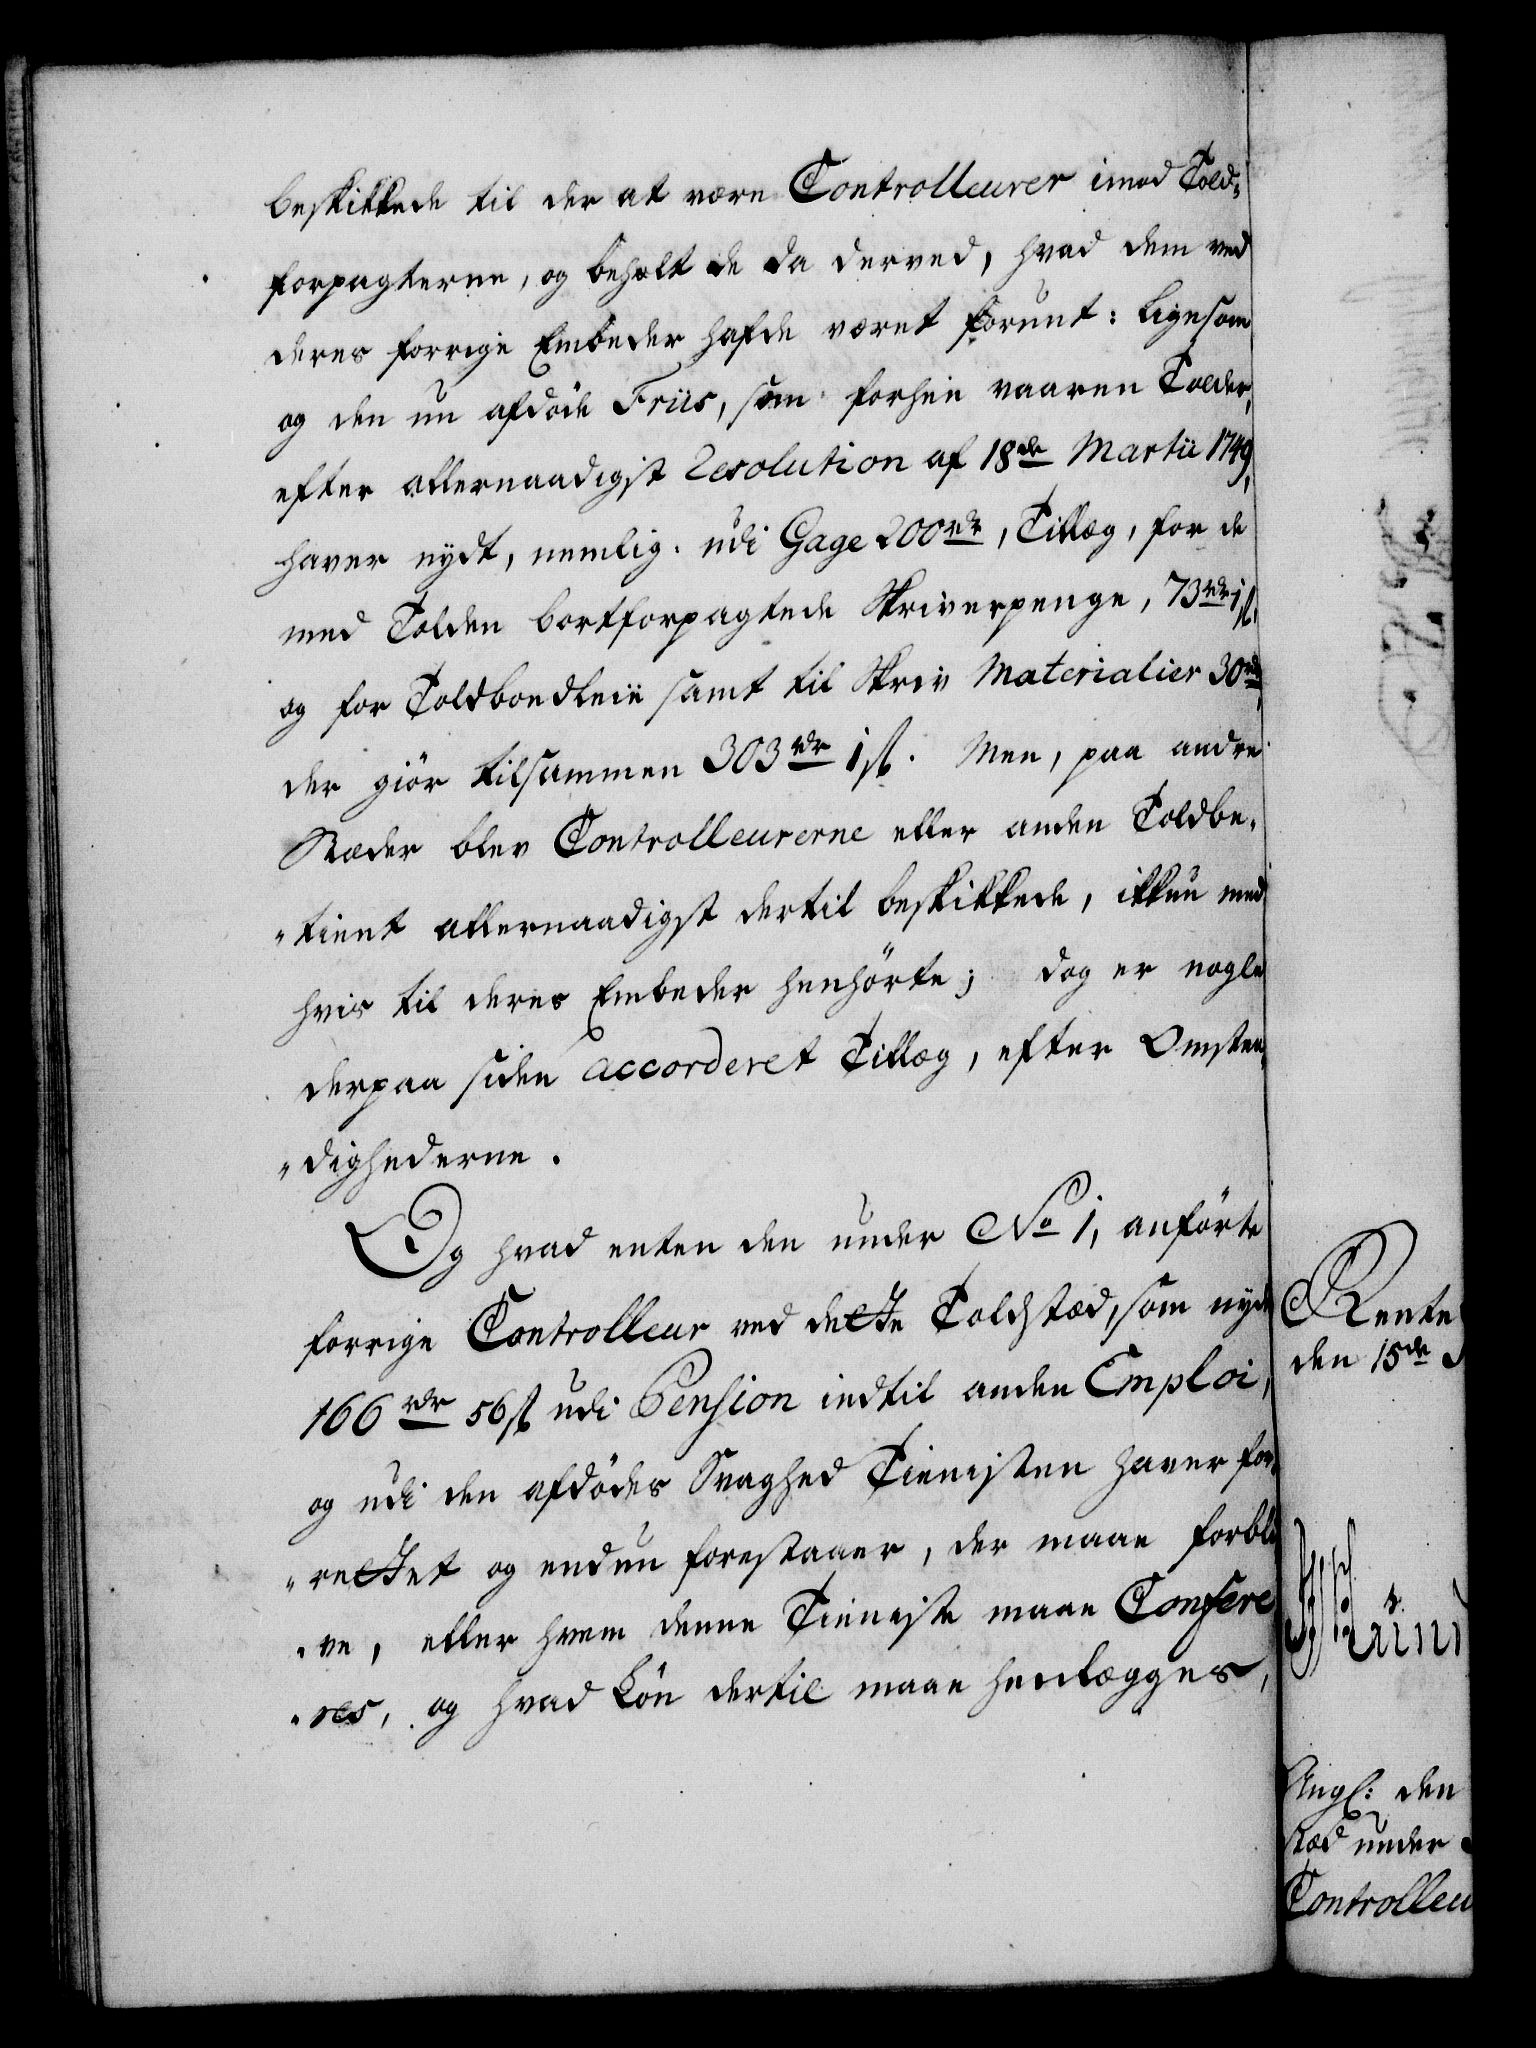 beskikkede til der at være Controlleurer imod Told-
forpagterne, og beholt de da derved, hvad dem ved
deres forrige Embeder hafde været forunt: ligesom
og den nu afdöde Friis, som forhen vaaren Tolder,
efter allernaadigst Resolution af 18de Martii 1749,
haver nydt, nemlig. udi Gage 200rdr, Tillæg, for de
med Tolden bortforpagtede Skriverpenge, 73rdr 1ß.
og for Toldboedleie samt til Skriv Materialier 30rdr,
der giör tilsammen 303rdr 1ß. Men, paa andre
Stæder blev Controlleurerne eller anden Toldbe-
"tient allernaadigst dertil beskikkede, ikkun med
hvis til deres Embeder henhörte; dog er nogle
derpaa siden accorderet Tillæg, efter Omstæn-
"dighederne.
Og hvad enten den under No 1, anförte
forrige Controlleur ved dette Toldstæd, som nyder
166rdr 56ß udi Pension indtil anden Emploi,
og udi den afdödes Svaghed Tienisten haver for-
"rettet og endnu forestaaer, der maae forbli-
"ve, eller hvem denne Tieniste maae Confere-
"res, og hvad Lön dertil maae henlægges,
Rente
den 15de
Angl: den
stæd under
Controlleu